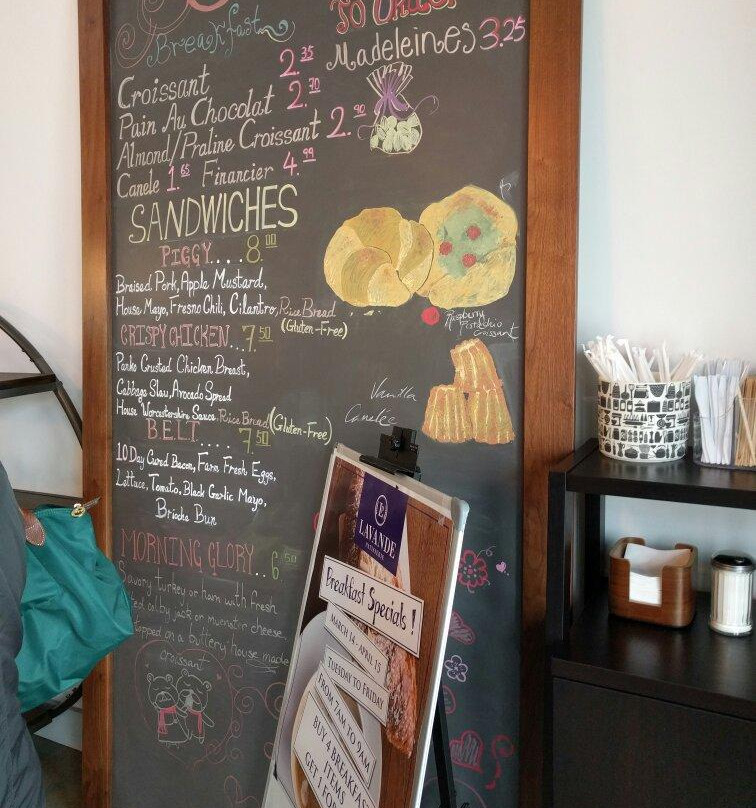 To Order
Breakfast
Madeleines 3.25
Croissant 2.35
Pain Au Chocolat 2.70
Almond/Praline Croissant 2.90
Canele 1.65 Financier 4.99
SANDWICHES
PIGGY.... 8.00
Braised Pork, Apple Mustard,
House Mayo, Fresno Chili, Cilantro, Rice Bread
(Gluten-Free)
Raspberry
Pistachio
Croissant
CRISPY CHICKEN... 7.50
Panko Crusted Chicken Breast,
Cabbage Slaw, Avocado Spread
House Worcestershire Sauce, Rice Bread (Gluten-Free)
Vanilla
Canelée
B.E.L.T..... 7.50
10 Day Cured Bacon, Farm Fresh Eggs,
Lettuce, Tomato, Black Garlic Mayo,
Brioche Bun
MORNING GLORY.. 6.50
Savory turkey or ham with fresh
colby jack or muenster cheese,
topped on a buttery house made
croissant
LAVANDE
Breakfast Specials!
MARCH 14 - APRIL 15
TUESDAY TO FRIDAY
FROM 7AM TO 9AM
BUY 4 BREAKFAST
ITEMS
GET